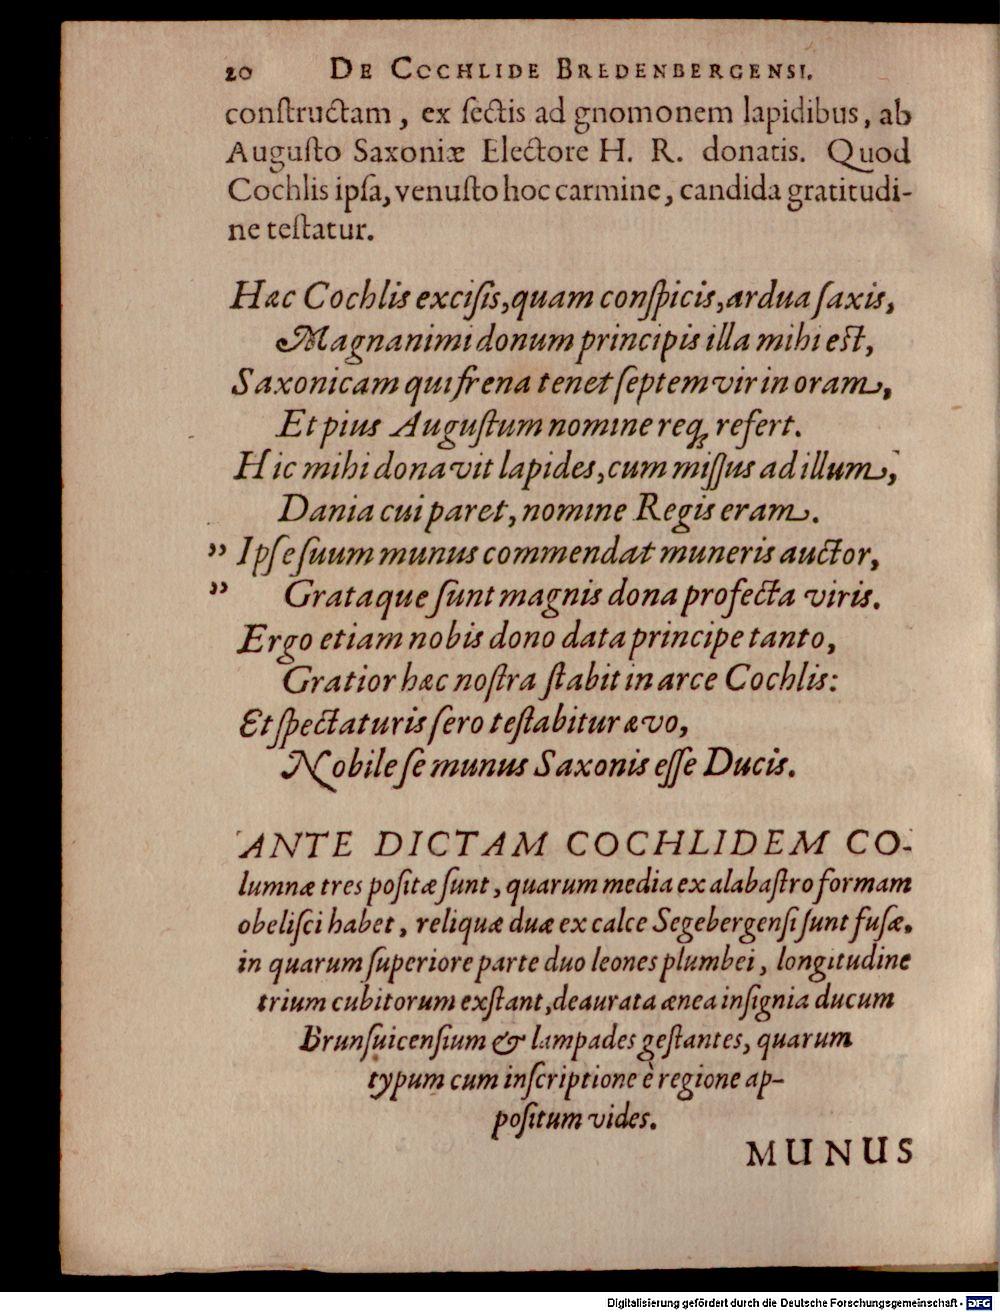 20 DE COCHLIDE BREDENBERGENSI.
conſtructam, ex ſectis ad gnomonem lapidibus, ab
Auguſto Saxoniæ Electore H. R. donatis. Quod
Cochlis ipſa, venuſto hoc carmine, candida gratitudi-
ne teſtatur.
Hæc Cochlis exciſis, quam conſpicis, ardua ſaxis,
Magnanimi donum principis illa mihi eſt,
Saxonicam qui frena tenet ſeptemvir in oram,
Et pius Auguſtum nomine req́ꝫ refert.
Hic mihi donavit lapides, cum miſſus ad illum,
Dania cui paret, nomine Regis eram.
„ Ipſe ſuum munus commendat muneris auctor,
„ Grataque ſunt magnis dona profecta viris.
Ergo etiam nobis dono data principe tanto,
Gratior hæc noſtra ſtabit in arce Cochlis:
Et ſpectaturis ſero teſtabitur ævo,
Nobile ſe munus Saxonis eſſe Ducis.
ANTE DICTAM COCHLIDEM CO-
lumnæ tres poſitæ ſunt, quarum media ex alabaſtro formam
obeliſci habet, reliquæ duæ ex calce Segebergenſi ſunt fuſæ,
in quarum ſuperiore parte duo leones plumbei, longitudine
trium cubitorum exſtant, deaurata ænea inſignia ducum
Brunſuicenſium & lampades geſtantes, quarum
typum cum inſcriptione è regione ap-
poſitum vides.
MUNUS
Digitalisierung gefördert durch die Deutsche Forschungsgemeinschaft - DFG